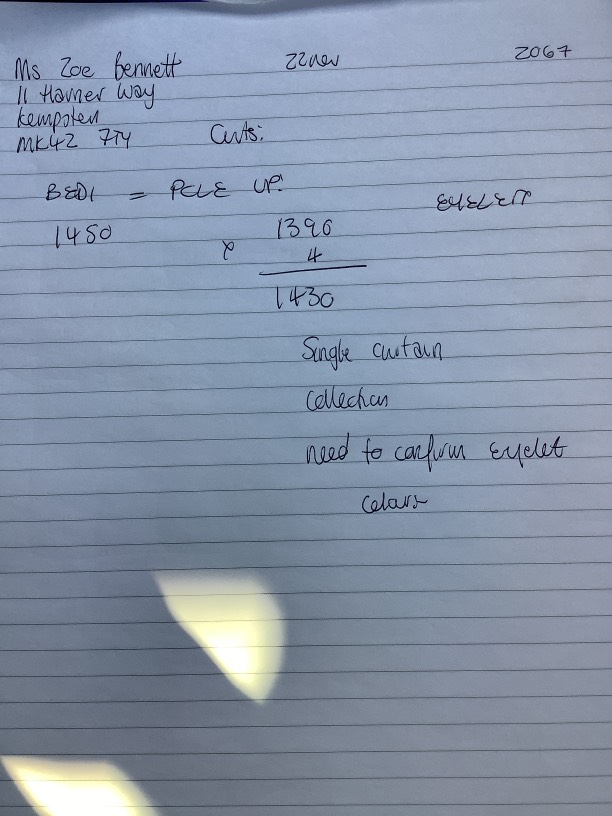 Ms Zoe Bennett 22nov 2067
11 Way
Kempston
MK42 7TY Curts:
BED1 = POLE UP. EYELETT
1450 1396
x 4
1430
Single curtain
Collection
need to confirm eyelet
colour